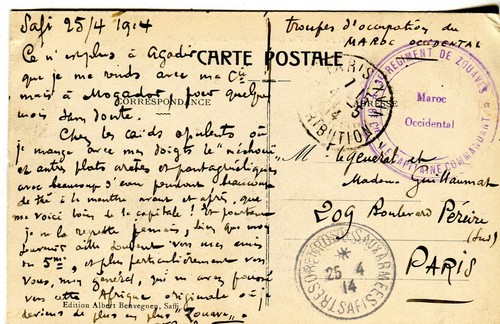 Safi 25/4 1914
Ce n'est plus à Agadir
que je me rends avec ma Cie
mais à Mogador pour quelques
mois sans doute.
Chez les caïds opulents où
je mange avec mes doigts le "méchoui"
et autres plats arabes et pantagruéliques
avec beaucoup d'eau pendant, beaucoup
de thé à la menthe avant et après, que
me voici loin de la capitale ! Et pourtant
je ne la regrette jamais, bien que mes
souvenirs aillent souvent vers mes amis
du 5me, et plus particulièrement vers
vous, mon général, qui m'avez poussé
vers cette Afrique originale où je
deviens de plus en plus "Zouave".
CARTE POSTALE
CORRESPONDANCE
ADRESSE
Edition Albert Benvegnen, Saffi
troupes d'occupation du
MAROC OCCIDENTAL
REGIMENT DE ZOUAVES
Maroc
Occidental
LE CAPITAINE COMMANDANT
PARIS XVII
DISTRIBUTION
M. le général et
Madame Guillaumat
209 Boulevard Péreire
(Sud)
PARIS
TRESOR ET POSTES AUX ARMEES
25 4
14
SAFI